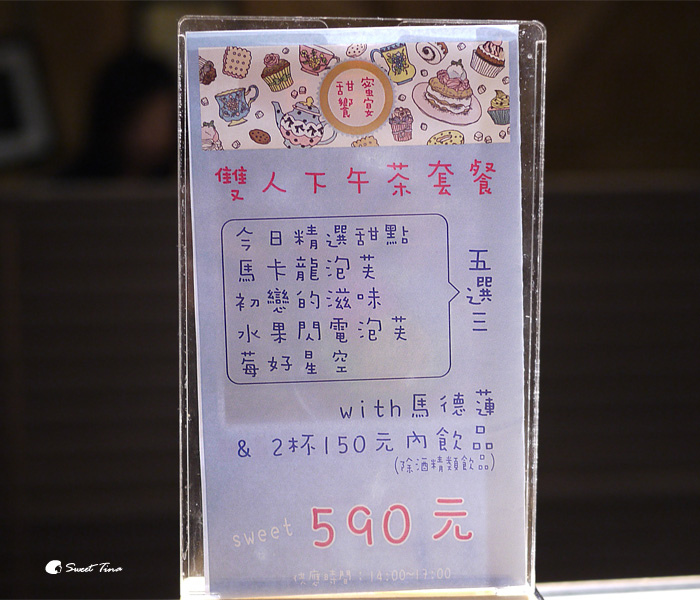 甜蜜
饗宴
雙人下午茶套餐
今日精選甜點
馬卡龍泡芙
初戀的滋味
水果閃電泡芙
莓好星空
五選三
with馬德蓮
& 2杯150元內飲品
(除酒精類飲品)
sweet 590元
供應時間：14:00~17:00
Sweet Tina